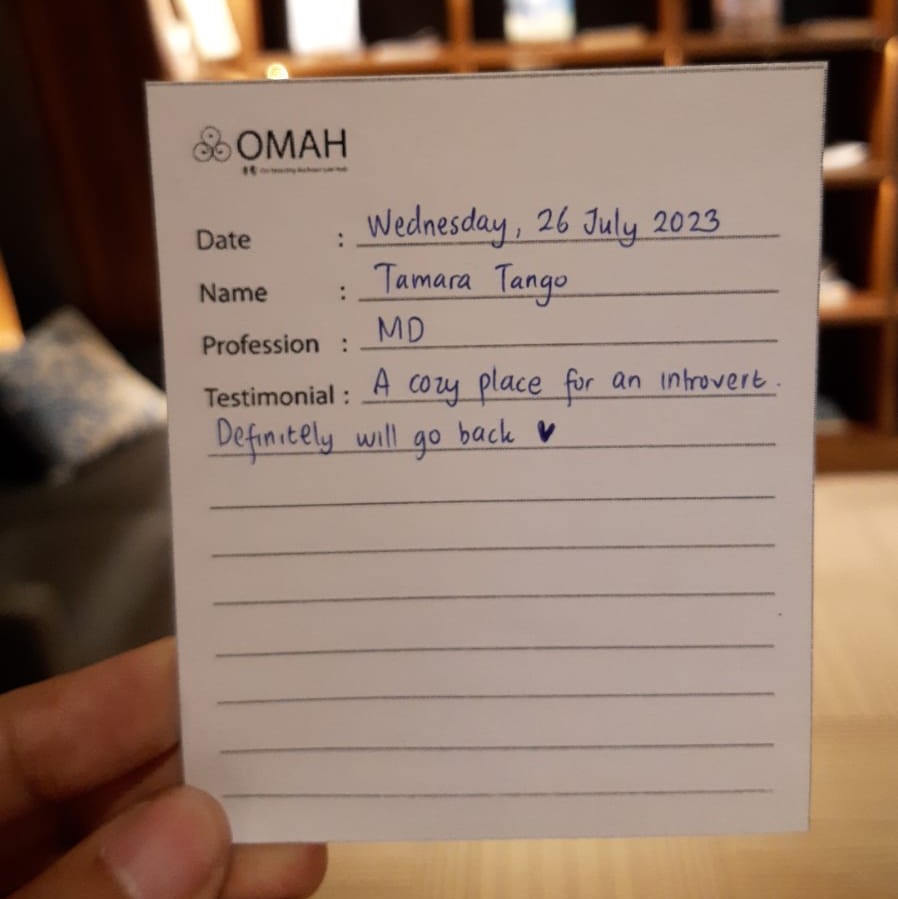 OMAH
Date : Wednesday, 26 July 2023
Name : Tamara Tango
Profession : MD
Testimonial : A cozy place for an introvert.
Definitely will go back ♥